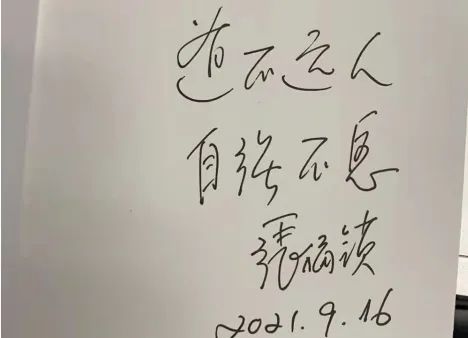 道不远人
自强不息
張福锁
2021.9.16